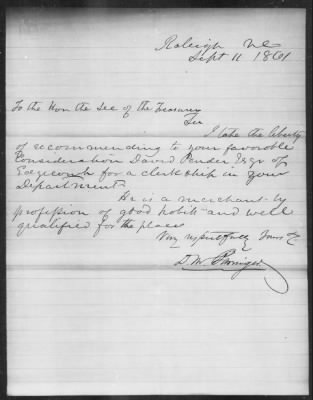 Raleigh NC
Sept 11 1861
To the Hon the Sec of the Treasury
Sir
I take the liberty
of recommending to your favorable
Consideration David Pender Esqr of
Edgecomb for a clerk ship in your
Department
He is a merchant by
profession of good habits and well
qualified for the place
Very respectfully Yours &c
D. M. Barringer